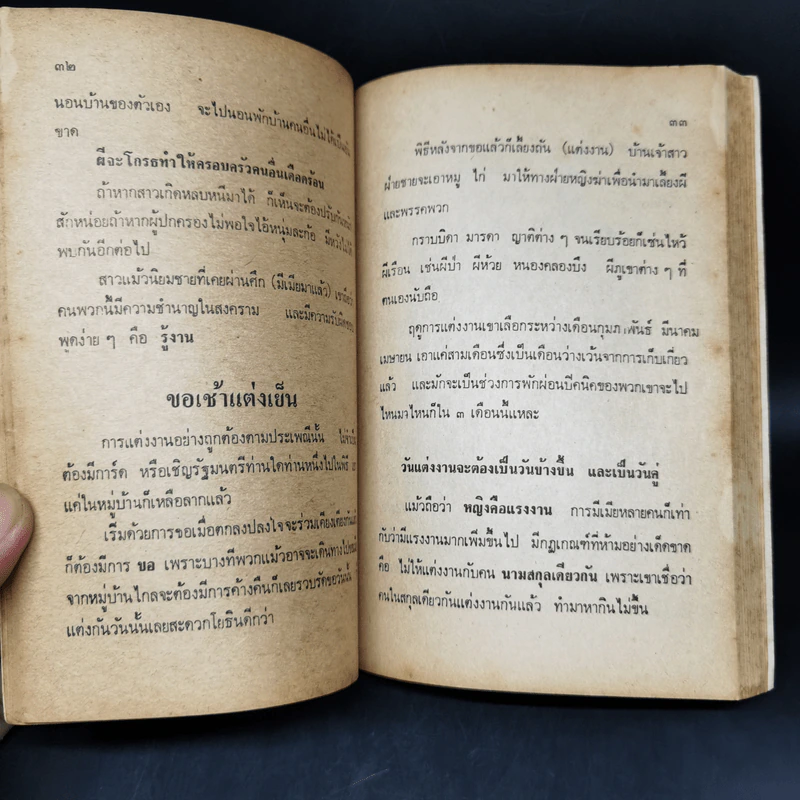 ๓๒
นอนบ้านของตัวเอง จะไปนอนพักบ้านคนอื่นไม่ได้เป็นอัน
ขาด
ผีจะโกรธทำให้ครอบครัวคนอื่นเดือดร้อน
ถ้าหากสาวเกิดหลบหนีมาได้ ก็เห็นจะต้องปรับกัน
สักหน่อยถ้าหากผู้ปกครองไม่พอใจไอ้หนุ่มละก้อ มีหวังไม่ได้
พบกันอีกต่อไป
สาวแม้วนิยมชายที่เคยผ่านศึก (มีเมียมาแล้ว)
คนพวกนี้มีความชำนาญในสงคราม และมีความรับผิดชอบ
พูดง่าย ๆ คือ รู้งาน
ขอเช้าแต่งเย็น
การแต่งงานอย่างถูกต้องตามประเพณีนั้น ไม่จำเป็น
ต้องมีการ์ด หรือเชิญรัฐมนตรีท่านใดท่านหนึ่งไปในพิธี
แค่ในหมู่บ้านก็เหลือลากแล้ว
เริ่มด้วยการขอเมื่อตกลงปลงใจจะร่วมเคียง
ก็ต้องมีการ ขอ เพราะบางทีพวกแม้วอาจจะเดินทาง
จากหมู่บ้านไกลจะต้องมีการค้างคืนก็เลยรวบรัดขอวันนั้น
แต่งกันวันนั้นเลยสะดวกโยธินดีกว่า
๓๓
พิธีหลังจากขอแล้วก็เลี้ยงกัน (แต่งงาน) บ้านเจ้าสาว
ฝ่ายชายจะเอาหมู ไก่ มาให้ทางฝ่ายหญิงฆ่าเพื่อนำมาเลี้ยงผี
และพรรคพวก
กราบบิดา มารดา ญาติต่าง ๆ จนเรียบร้อยก็เซ่นไหว้
ผีเรือน เช่นผีป่า ผีห้วย หนองคลองบึง ผีภูเขาต่าง ๆ ที่
คนเองนับถือ
ฤดูการแต่งงานเขาเลือกระหว่างเดือนกุมภาพันธ์ มีนาคม
เมษายน เอาแค่สามเดือนซึ่งเป็นเดือนว่างเว้นจากการเก็บเกี่ยว
แล้ว และมักจะเป็นช่วงการพักผ่อนปิคนิคของพวกเขาจะไป
ไหนมาไหนก็ใน ๓ เดือนนี้แหละ
วันแต่งงานจะต้องเป็นวันข้างขึ้น และเป็นวันคู่
แม้วถือว่า หญิงคือแรงงาน การมีเมียหลายคนก็เท่า
กับว่ามีแรงงานมากเพิ่มขึ้นไป มีกฎเกณฑ์ที่ห้ามอย่างเด็ดขาด
คือ ไม่ให้แต่งงานกับคน นามสกุลเดียวกัน เพราะเขาเชื่อว่า
คนในสกุลเดียวกันแต่งงานกันแล้ว ทำมาหากินไม่ขึ้น